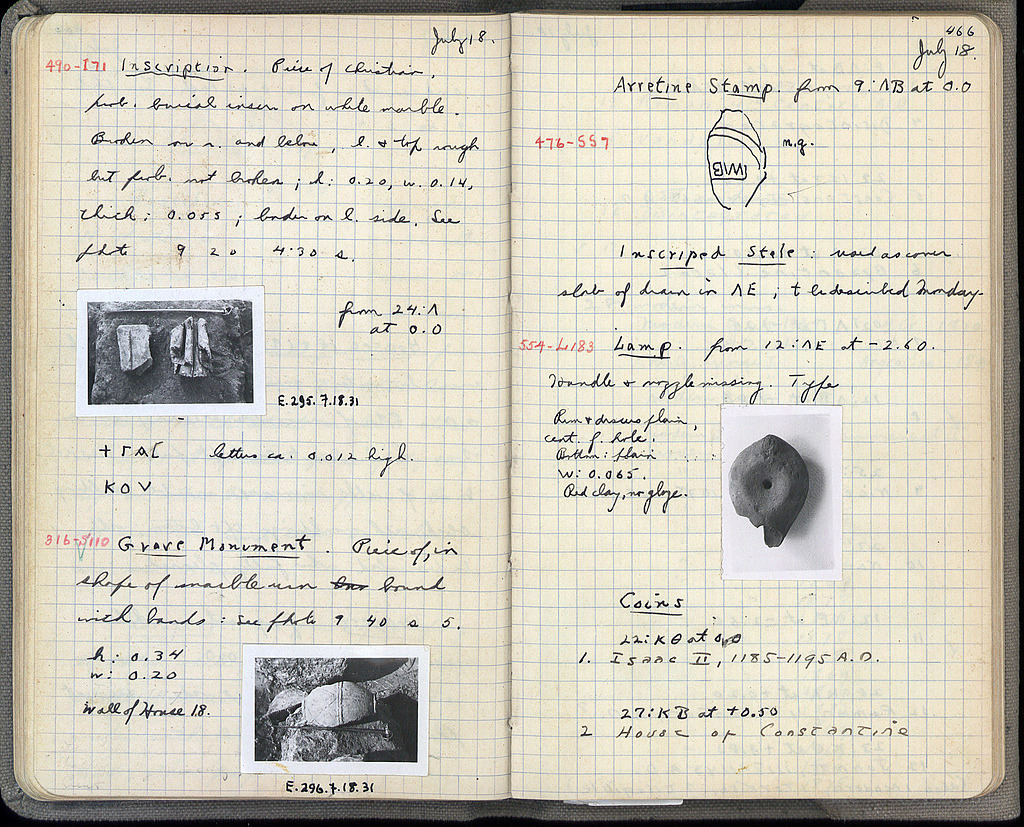 July 18.
490-I71 Inscription. Piece of Christian,
prob. burial inscr on white marble.
Broken on r. and below, l. & top rough
but prob. not broken; h: 0.20, w. 0.14,
thick: 0.055; border on l. side. See
photo 9 20 4:30 s.
from 24:Λ
at 0.0
E.295.7.18.31
+ ΓΑ[ letters ca. 0.012 high.
ΚΟV
316-S110 Grave Monument. Piece of, in
shape of marble urn bound
with bands: see photo 9 40 s 5.
h: 0.34
w: 0.20
Wall of House 18.
E.296.7.18.31
466
July 18.
Arretine Stamp. from 9:ΛB at 0.0
476-SS7
n.g.
Inscriped Stele: used as cover
slab of drain in ΛE; to be described Monday.
554-L183 Lamp. from 12:ΛE at -2.60.
Handle & nozzle missing. Type
Rim & discus plain,
cent. f. hole.
Bottom: plain
W: 0.065.
Red clay, no glaze.
Coins
22:KΘ at 0.0
1. Isaac II, 1185-1195 A.D.
27:KB at +0.50
2 House of Constantine